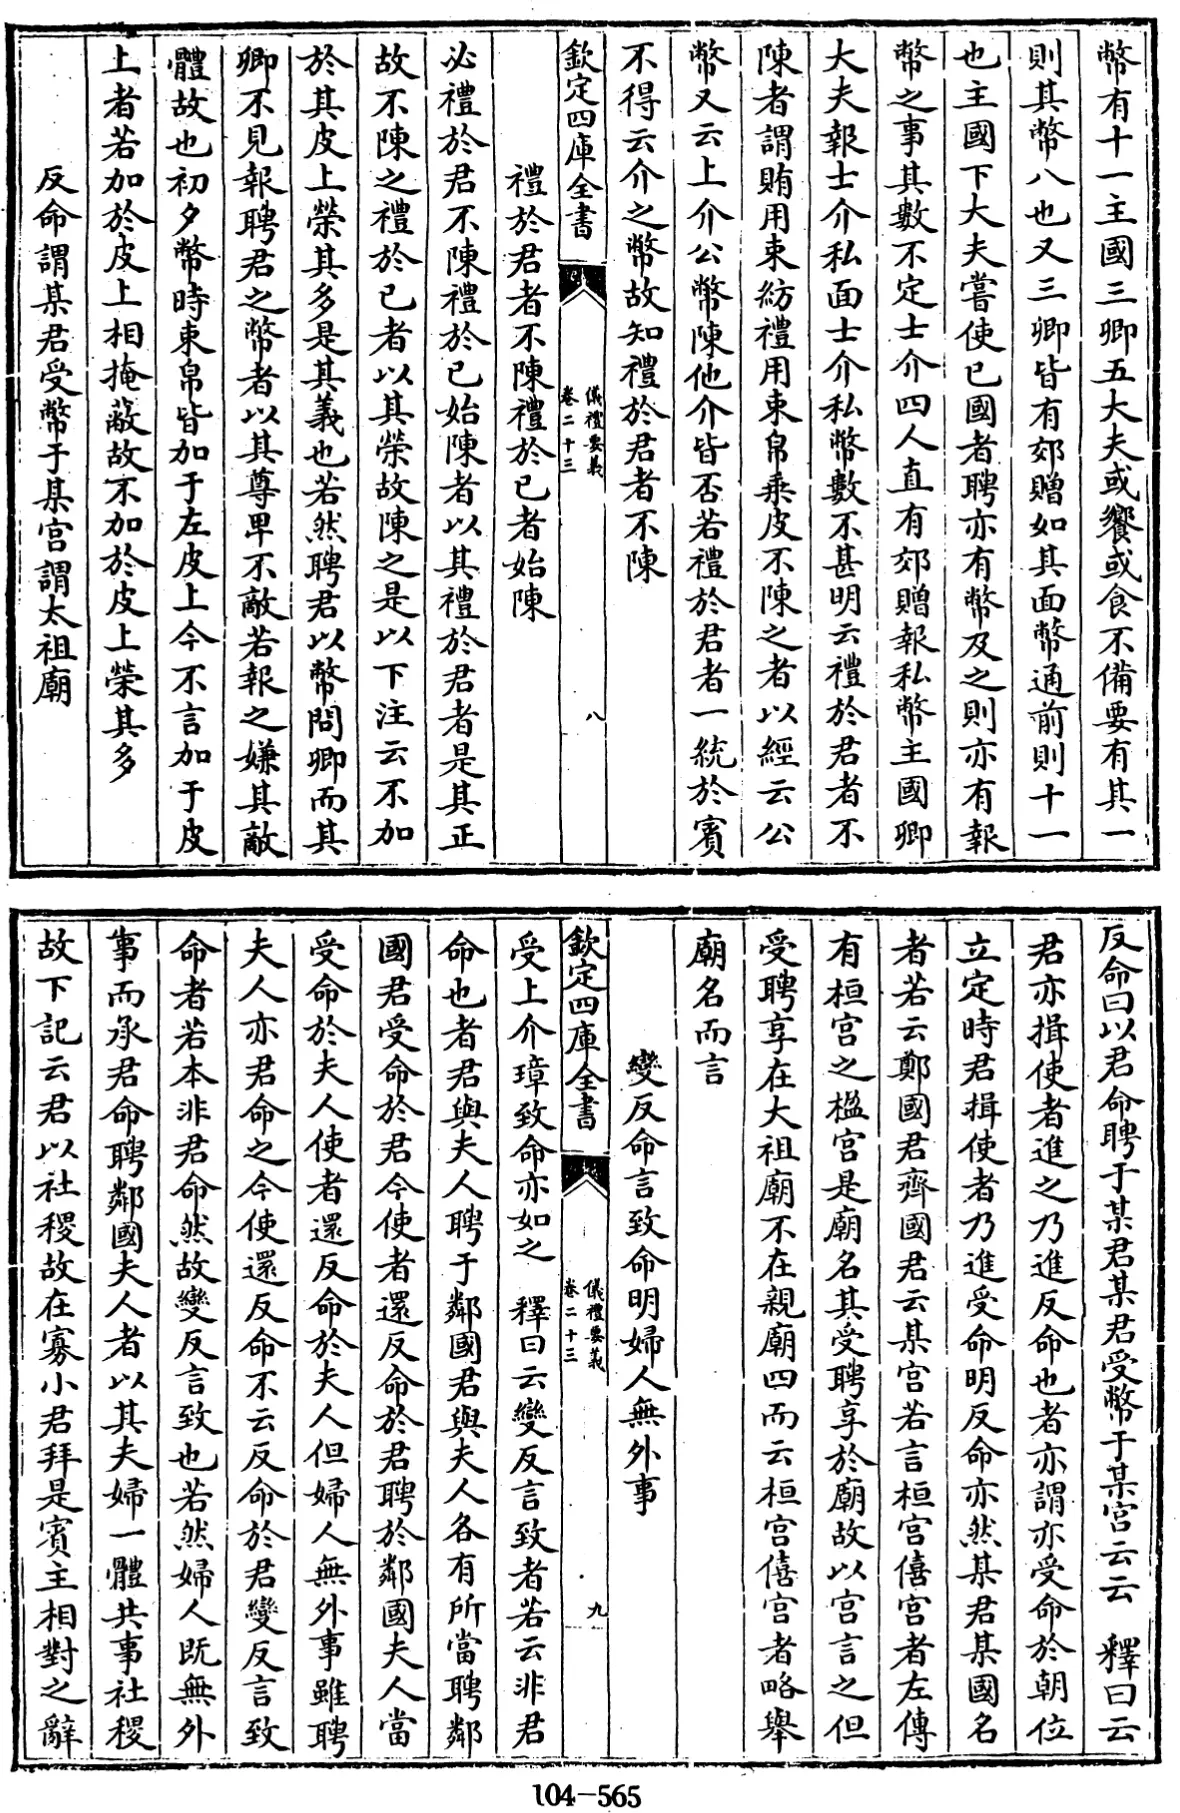 幣有十一主國三卿五大夫或饗或食不備要有其一
則其幣八也又三卿皆有郊贈如其面幣通前則十一
也主國下大夫嘗使已國者聘亦有幣及之則亦有報
幣之事其數不定士介四人直有郊贈報私幣主國卿
大夫報士介私面士介私幣數不甚明云禮於君者不
陳者謂賄用束紡禮用束帛乘皮不陳之者以經云公
幣又云上介公幣陳他介皆否若禮於君者一統於賓
不得云介之幣故知禮於君者不陳
欽定四庫全書
儀禮要義
卷二十三
八
禮於君者不陳禮於已者始陳
必禮於君不陳禮於已始陳者以其禮於君者是其正
故不陳之禮於已者以其榮故陳之是以下注云不加
於其皮上榮其多是其義也若然聘君以幣問卿而其
卿不見報聘君之幣者以其尊卑不敵若報之嫌其敵
體故也初夕幣時束帛皆加于左皮上今不言加于皮
上者若加於皮上相掩蔽故不加於皮上榮其多
反命謂某君受幣于某宮謂太祖廟
反命曰以君命聘于某君某君受幣于某宮云云　釋曰云
君亦揖使者進之乃進反命也者亦謂亦受命於朝位
立定時君揖使者乃進受命明反命亦然某君某國名
者若云鄭國君齊國君云某宮若言桓宮僖宮者左傳
有桓宮之楹宮是廟名其受聘享於廟故以宮言之但
受聘享在大祖廟不在親廟四而云桓宮僖宮者略舉
廟名而言
變反命言致命明婦人無外事
欽定四庫全書
儀禮要義
卷二十三
九
受上介璋致命亦如之　釋曰云變反言致者若云非君
命也者君與夫人聘于鄰國君與夫人各有所當聘鄰
國君受命於君今使者還反命於君聘於鄰國夫人當
受命於夫人使者還反命於夫人但婦人無外事雖聘
夫人亦君命之今使還反命不云反命於君變反言致
命者若本非君命然故變反言致也若然婦人既無外
事而承君命聘鄰國夫人者以其夫婦一體共事社稷
故下記云君以社稷故在寡小君拜是賓主相對之辭
104-565